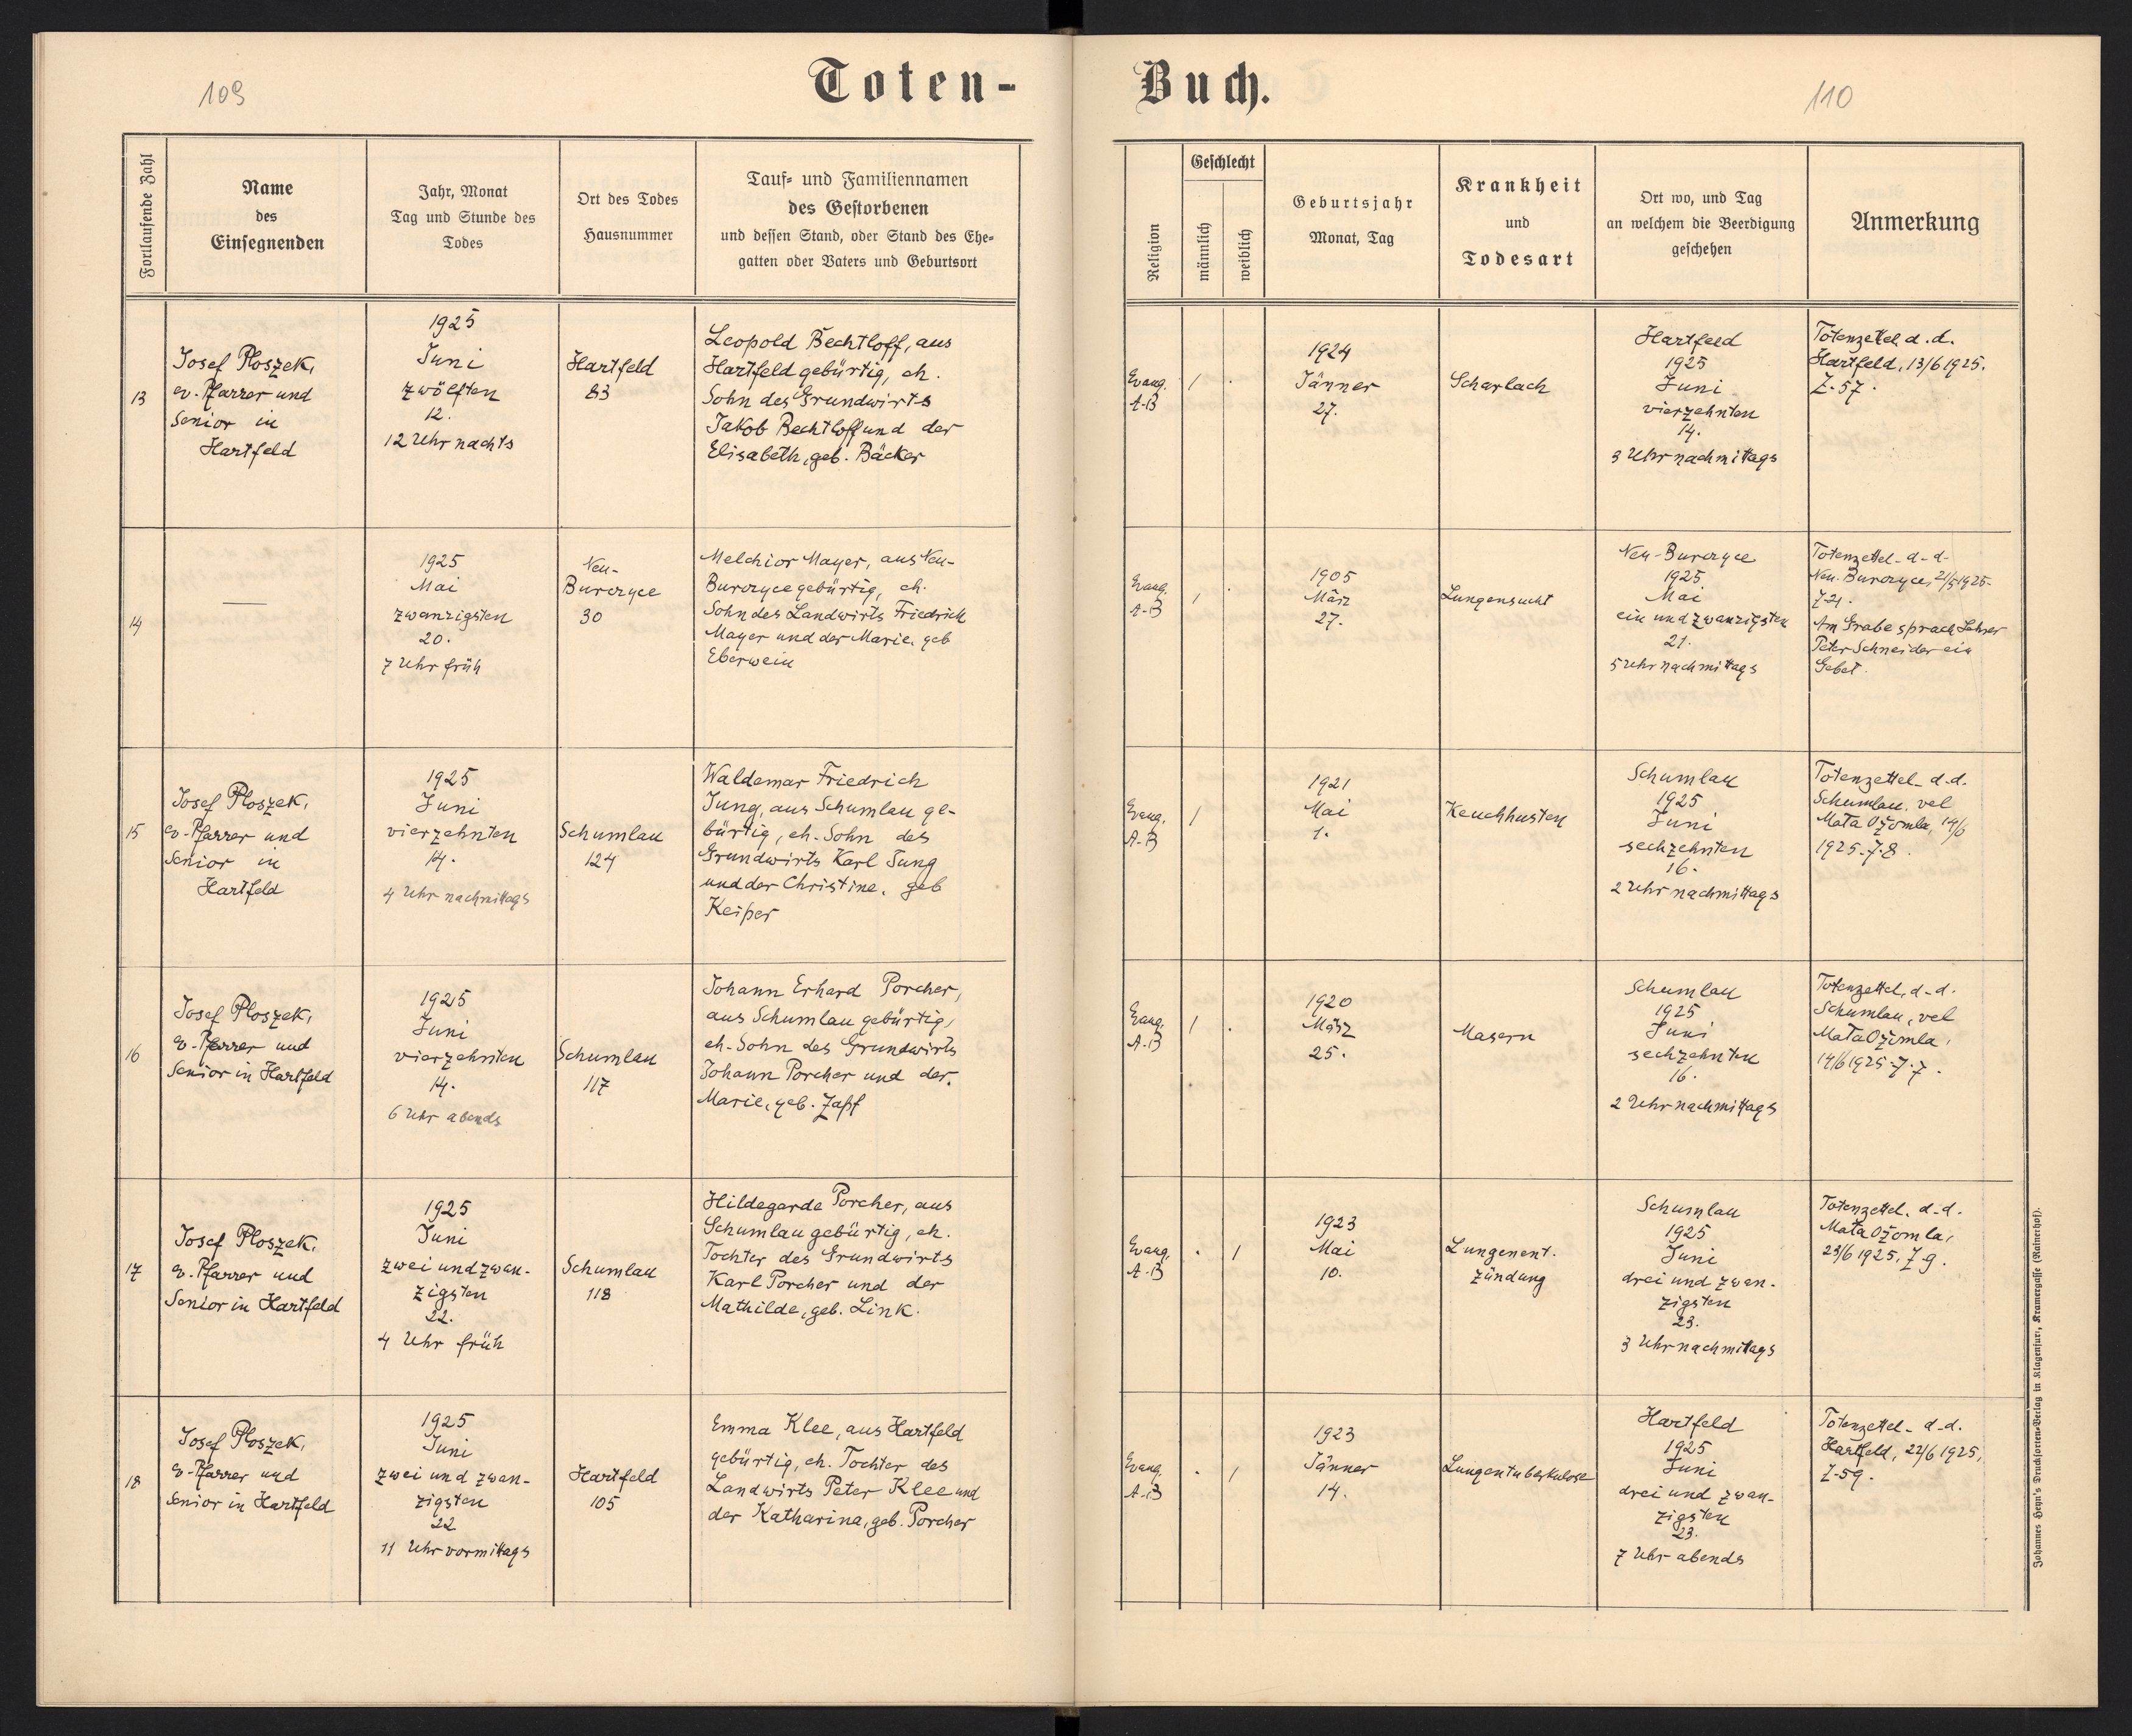 109
Toten-
Buch.
110
Fortlaufende Zahl
Name
des
Einsegnenden
Jahr, Monat
Tag und Stunde des
Todes
Ort des Todes
Hausnummer
Tauf- und Familiennamen
des Gestorbenen
und dessen Stand, oder Stand des Ehe-
gatten oder Vaters und Geburtsort
Religion
Geschlecht
männlich
weiblich
Geburtsjahr
Monat, Tag
Krankheit
und
Todesart
Ort wo, und Tag
an welchem die Beerdigung
geschehen
Anmerkung
13
Josef Ploszek,
ev. Pfarrer und
Senior in
Hartfeld
1925
Juni
zwölften
12.
12 Uhr nachts
Hartfeld
83
Leopold Bechtloff, aus
Hartfeld gebürtig, eh.
Sohn des Grundwirts
Jakob Bechtloff und der
Elisabeth, geb. Bäcker
Evang.
A-B
1
.
1924
Jänner
27.
Scharlach
Hartfeld
1925
Juni
vierzehnten
14.
3 Uhr nachmittags
Totenzettel d.d.
Hartfeld, 13/6 1925.
Z-57.
14
—
1925
Mai
zwanzigsten
20.
7 Uhr früh
Neu-
Burczyce
30
Melchior Mayer, aus Neu-
Burczyce gebürtig, eh.
Sohn des Landwirts Friedrich
Mayer und der Marie, geb
Eberwein
Evang.
A-B
1
.
1905
März
27.
Lungensucht
Neu-Burczyce
1925
Mai
ein und zwanzigsten
21.
5 Uhr nachmittags
Totenzettel d-d-
Neu-Burczyce, 21/5 1925-
Z21.
Am Grabe sprach Lehrer
Peter Schneider ein
Gebet.
15
Josef Ploszek,
ev-Pfarrer und
Senior in
Hartfeld
1925
Juni
vierzehnten
14.
4 Uhr nachmittags
Schumlau
124
Waldemar Friedrich
Jung, aus Schumlau ge-
bürtig, eh. Sohn des
Grundwirts Karl Jung
und der Christine, geb
Keiper
Evang.
A-B
1
1921
Mai
1.
Keuchhusten
Schumlau
1925
Juni
sechzehnten
16.
2 Uhr nachmittags
Totenzettel d-d.
Schumlau, vel
Mała Ożomla, 14/6
1925-Z-8.
16
Josef Ploszek,
ev-Pfarrer und
Senior in Hartfeld
1925
Juni
vierzehnten
14.
6 Uhr abends
Schumlau
117
Johann Erhard Porcher,
aus Schumlau gebürtig,
eh-Sohn des Grundwirts
Johann Porcher und der
Marie, geb. Zapf
Evang.
A-B
1
.
1920
März
25.
Masern
Schumlau
1925
Juni
sechzehnten
16.
2 Uhr nachmittags
Totenzettel, d-d.
Schumlau, vel
Mała Ożomla,
14/6 1925-Z-7.
17
Josef Ploszek,
ev-Pfarrer und
Senior in Hartfeld
1925
Juni
zwei und zwan-
zigsten
22.
4 Uhr früh
Schumlau
118
Hildegarde Porcher, aus
Schumlau gebürtig, eh.
Tochter des Grundwirts
Karl Porcher und der
Mathilde, geb. Link.
Evang.
A-B
.
1
1923
Mai
10.
Lungenent.
zündung
Schumlau
1925
Juni
drei und zwan-
zigsten
23.
3 Uhr nachmittags
Totenzettel. d-d.
Mała Ożomla,
23/6 1925. Z 9.
18
Josef Ploszek,
ev-Pfarrer und
Senior in Hartfeld
1925
Juni
zwei und zwan-
zigsten
22
11 Uhr vormittags
Hartfeld
105
Emma Klee, aus Hartfeld
gebürtig, eh. Tochter des
Landwirts Peter Klee und
der Katharina, geb. Porcher
Evang.
A-B
.
1
1923
Jänner
14.
Lungentuberkulose
Hartfeld
1925
Juni
drei und zwan-
zigsten
23.
7 Uhr abends
Totenzettel- d-d.
Hartfeld, 22/6 1925,
Z-59.
Johannes Heyn's Drucksorten-Verlag in Klagenfurt, Kramergasse (Rainerhof).